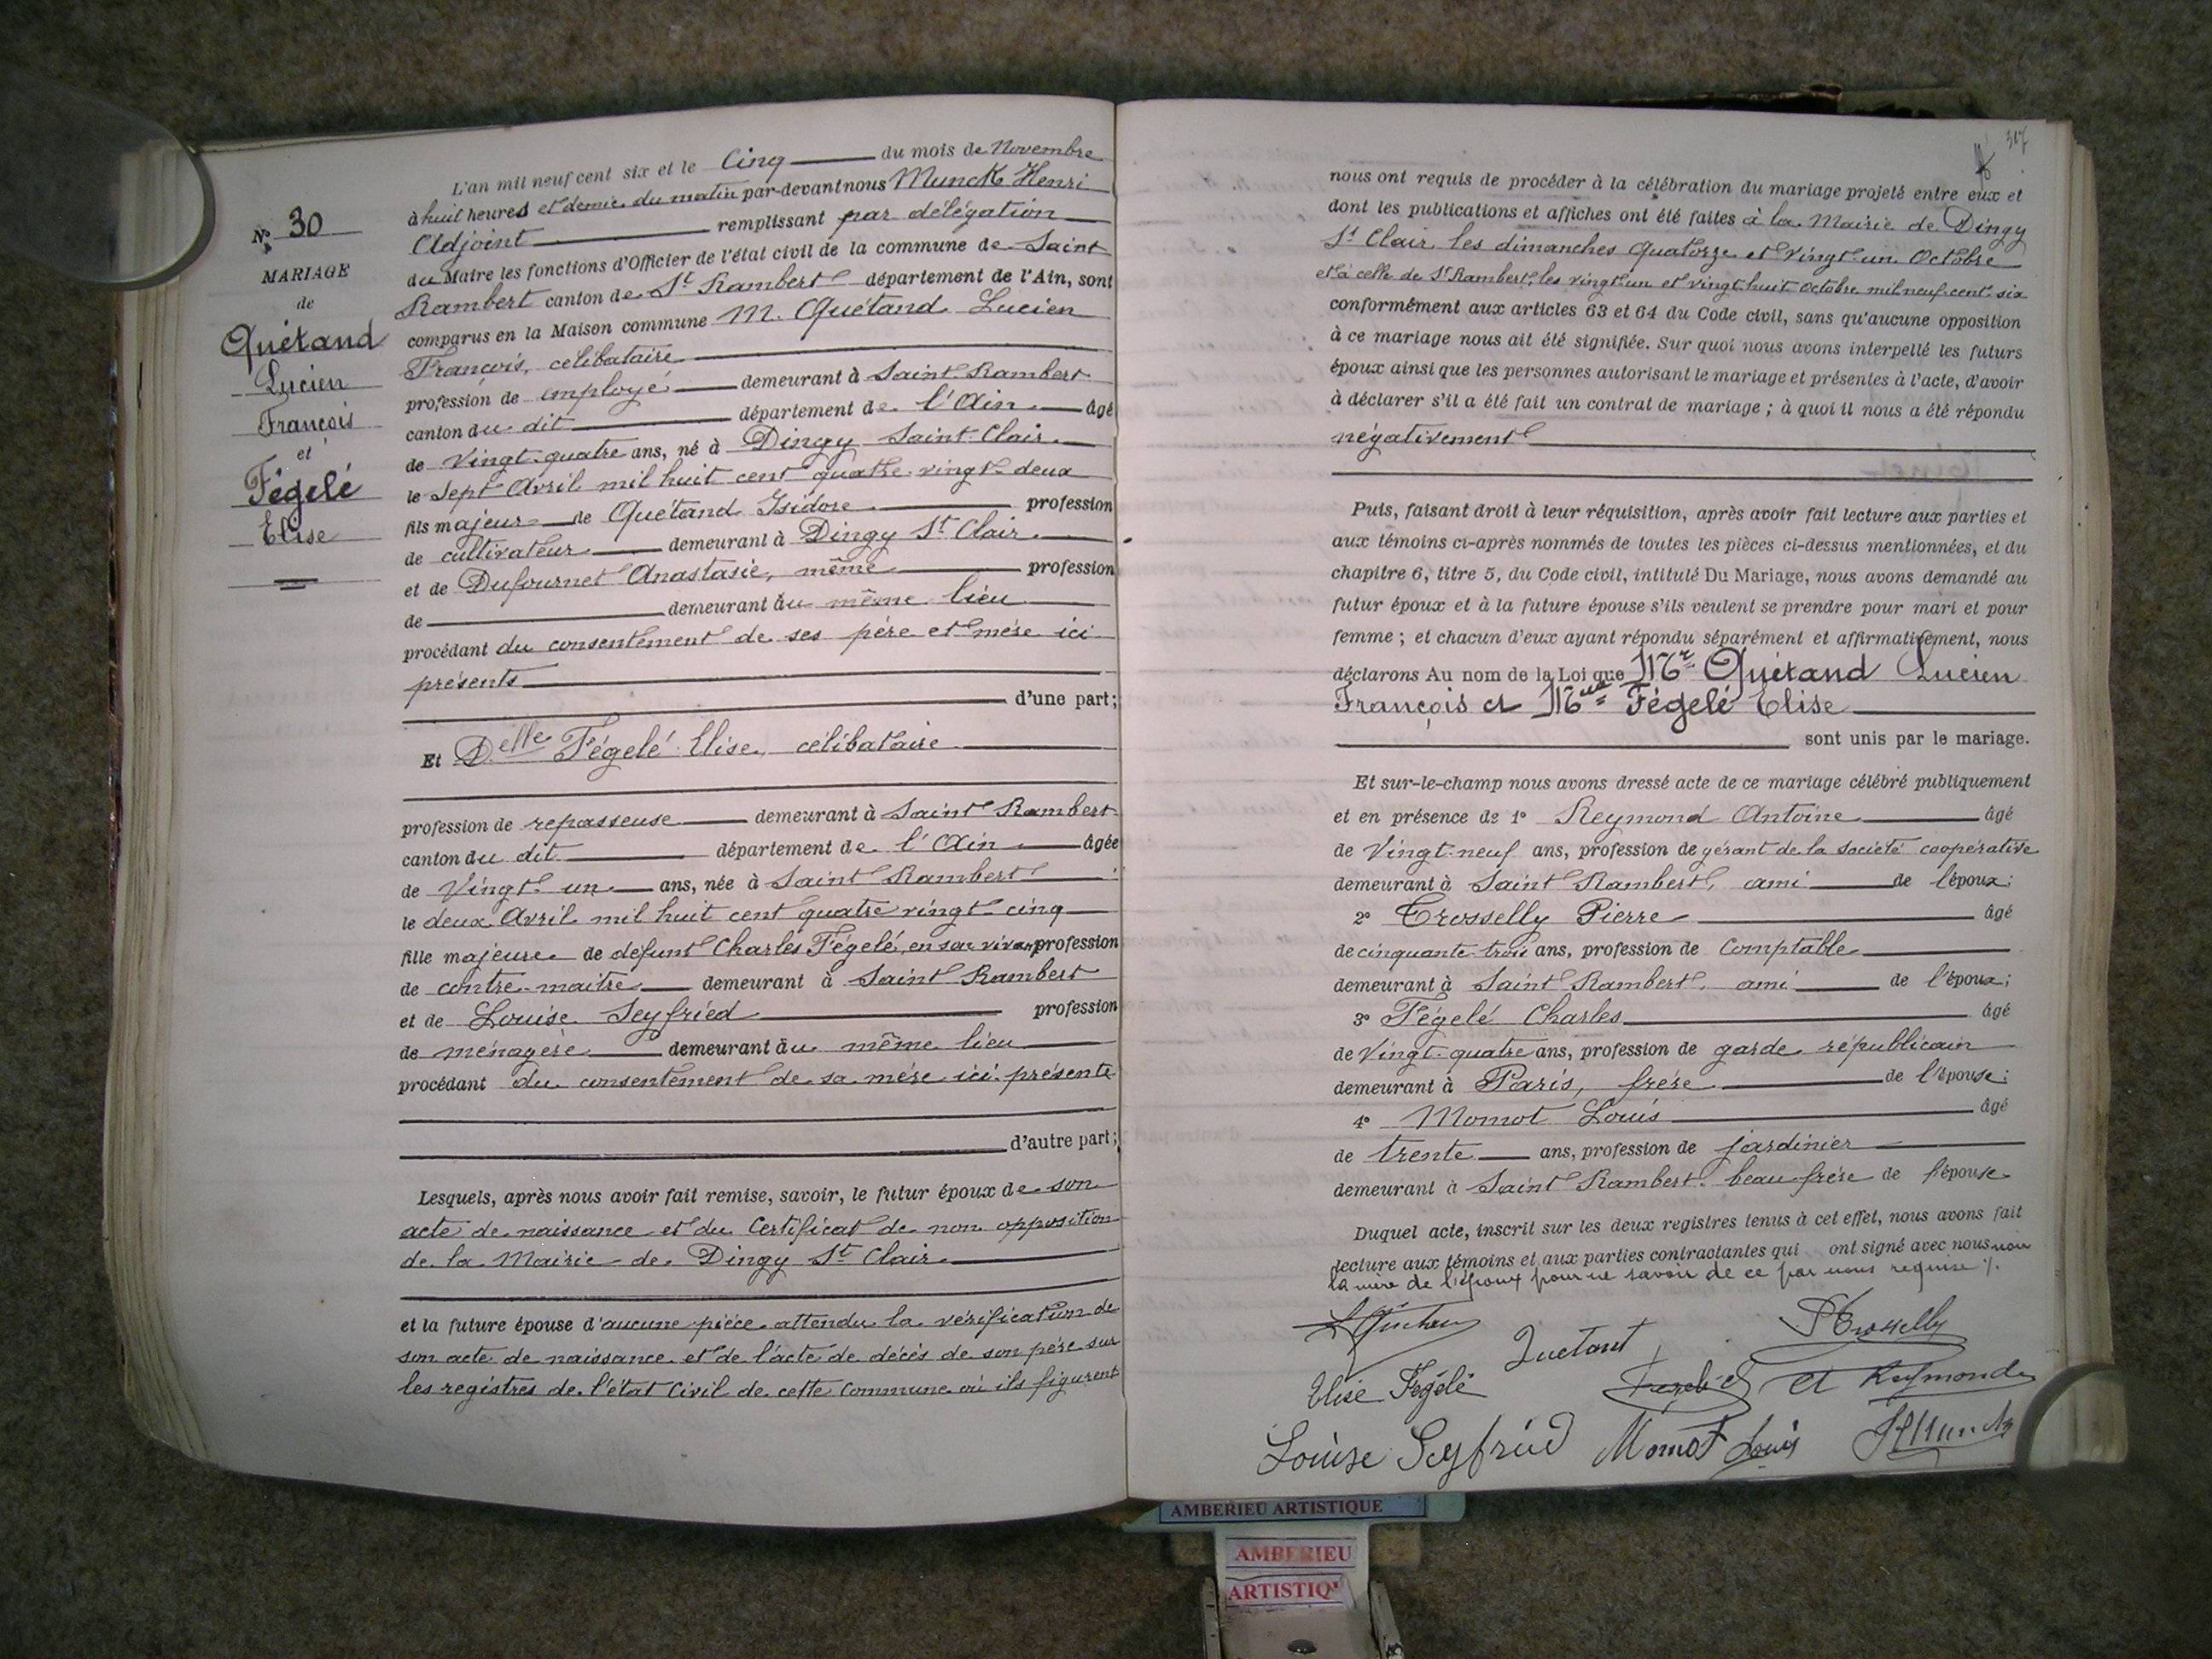 Nº 30
MARIAGE
de
Quétand
Lucien
François
et
Fégelé
Elise
L'an mil neuf cent six et le Cinq du mois de Novembre
à huit heures et demie du matin par-devant nous Munck Henri
Adjoint remplissant par délégation
du Maire les fonctions d'Officier de l'état civil de la commune de Saint
Rambert canton de St Rambert département de l'Ain, sont
comparus en la Maison commune M. Quétand Lucien
François, celibataire
profession de employé demeurant à Saint Rambert
canton du dit département de l'Ain âgé
de Vingt-quatre ans, né à Dingy Saint-Clair
le sept Avril mil huit cent quatre-vingt-deux
fils majeur de Quétand Isidore profession
de cultivateur demeurant à Dingy St Clair
et de Dufournet Anastasie, même profession
de demeurant au même lieu
procédant du consentement de ses père et mère ici
présents
d'une part;
Et Delle Fégelé Elise, celibataire
profession de repasseuse demeurant à Saint Rambert
canton du dit département de l'Ain âgée
de Vingt-un ans, née à Saint Rambert
le deux Avril mil huit cent quatre vingt-cinq
fille majeure de défunt Charles Fégelé, en son vivant profession
de contre-maître demeurant à Saint Rambert
et de Louise Seyfried profession
de ménagère demeurant au même lieu
procédant du consentement de sa mère ici présente
d'autre part;
Lesquels, après nous avoir fait remise, savoir, le futur époux de son
acte de naissance et du Certificat de non opposition
de la Mairie de Dingy St Clair
et la future épouse d'aucune pièce attendu la vérification de
son acte de naissance et de l'acte de décès de son père sur
les registres de l'état Civil de cette Commune où ils figurent
317
nous ont requis de procéder à la célébration du mariage projeté entre eux et
dont les publications et affiches ont été faites à la Mairie de Dingy
St Clair les dimanches Quatorze et Vingt-un Octobre
et à celle de St Rambert, les vingt-un et vingt-huit Octobre mil neuf cent six
conformément aux articles 63 et 64 du Code civil, sans qu'aucune opposition
à ce mariage nous ait été signifiée. Sur quoi nous avons interpellé les futurs
époux ainsi que les personnes autorisant le mariage et présentes à l'acte, d'avoir
à déclarer s'il a été fait un contrat de mariage ; à quoi il nous a été répondu
négativement
Puis, faisant droit à leur réquisition, après avoir fait lecture aux parties et
aux témoins ci-après nommés de toutes les pièces ci-dessus mentionnées, et du
chapitre 6, titre 5, du Code civil, intitulé Du Mariage, nous avons demandé au
futur époux et à la future épouse s'ils veulent se prendre pour mari et pour
femme ; et chacun d'eux ayant répondu séparément et affirmativement, nous
déclarons Au nom de la Loi que Mr Quétand Lucien
François et Melle Fégelé Elise
sont unis par le mariage.
Et sur-le-champ nous avons dressé acte de ce mariage célébré publiquement
et en présence de 1º Reymond Antoine âgé
de Vingt-neuf ans, profession de gérant de la société coopérative
demeurant à Saint Rambert, ami de l'époux;
2º Trosselly Pierre âgé
de cinquante-trois ans, profession de Comptable
demeurant à Saint Rambert, ami de l'époux;
3º Fégelé Charles âgé
de Vingt-quatre ans, profession de garde républicain
demeurant à Paris, frère de l'épouse;
4º Momot Louis âgé
de trente ans, profession de jardinier
demeurant à Saint Rambert beau-frère de l'épouse
Duquel acte, inscrit sur les deux registres tenus à cet effet, nous avons fait
lecture aux témoins et aux parties contractantes qui ont signé avec nous non
la mère de l'époux pour ne savoir de ce par nous requise
Quetant PTrosselly
Elise Fégelé Fegelé C A Reymond
Louise Seyfried Momot Louis HMunck
AMBERIEU ARTISTIQUE
AMBERIEU
ARTISTIQ